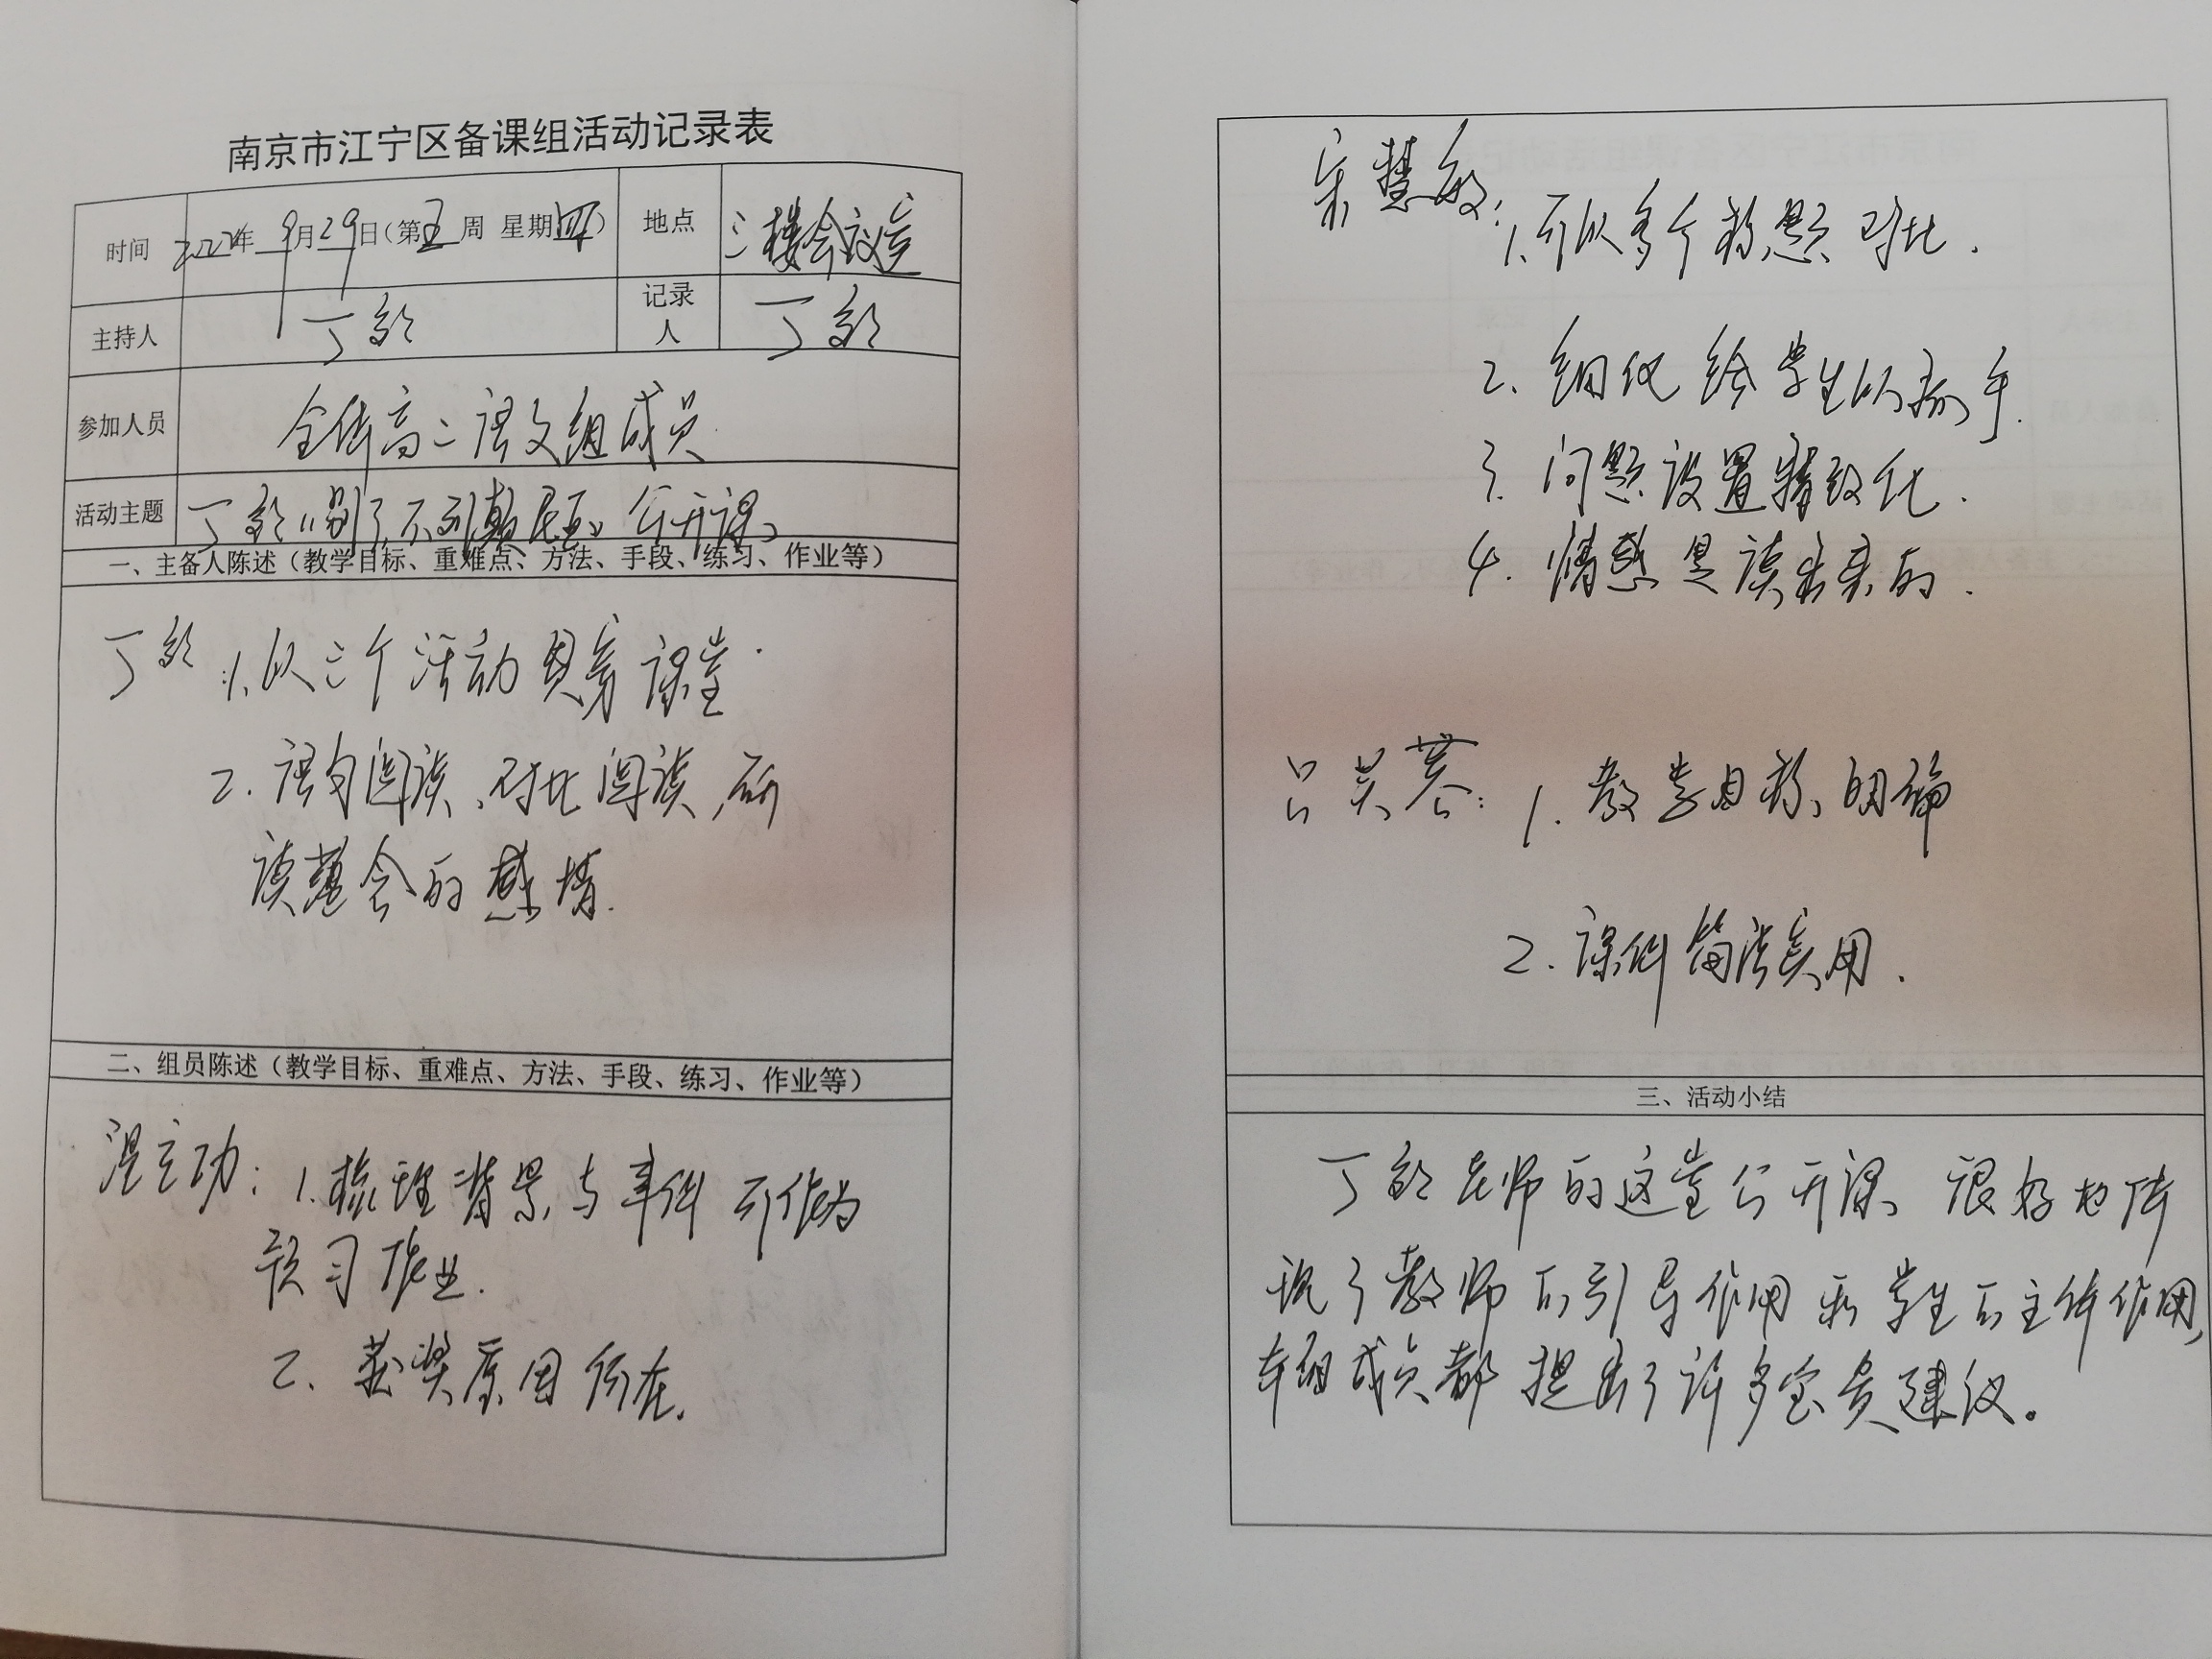 南京市江宁区备课组活动记录表
时间 2022年 9月29日(第五周 星期四) 地点 三楼会议室
主持人 丁 记录人 丁
参加人员 全体高二语文组成员
活动主题 丁 《别了,不列颠尼亚》公开课
一、主备人陈述(教学目标、重难点、方法、手段、练习、作业等)
丁 :1.以三个活动贯穿课堂.
2.语句阅读、对比阅读,研
读蕴含的感情.
二、组员陈述(教学目标、重难点、方法、手段、练习、作业等)
1.梳理背景与事件可作为
预习作业.
2.获奖原因所在.
宋慧敏:1.可以多个标题对比.
2.细化给学生的抓手.
3.问题设置精致化.
4.情感是读出来的.
吕芙蓉:1.教学目标明确
2.课件简洁实用.
三、活动小结
丁 老师的这堂公开课,很好地体
现了教师的引导作用和学生的主体作用,
本组成员都提出了许多宝贵建议。